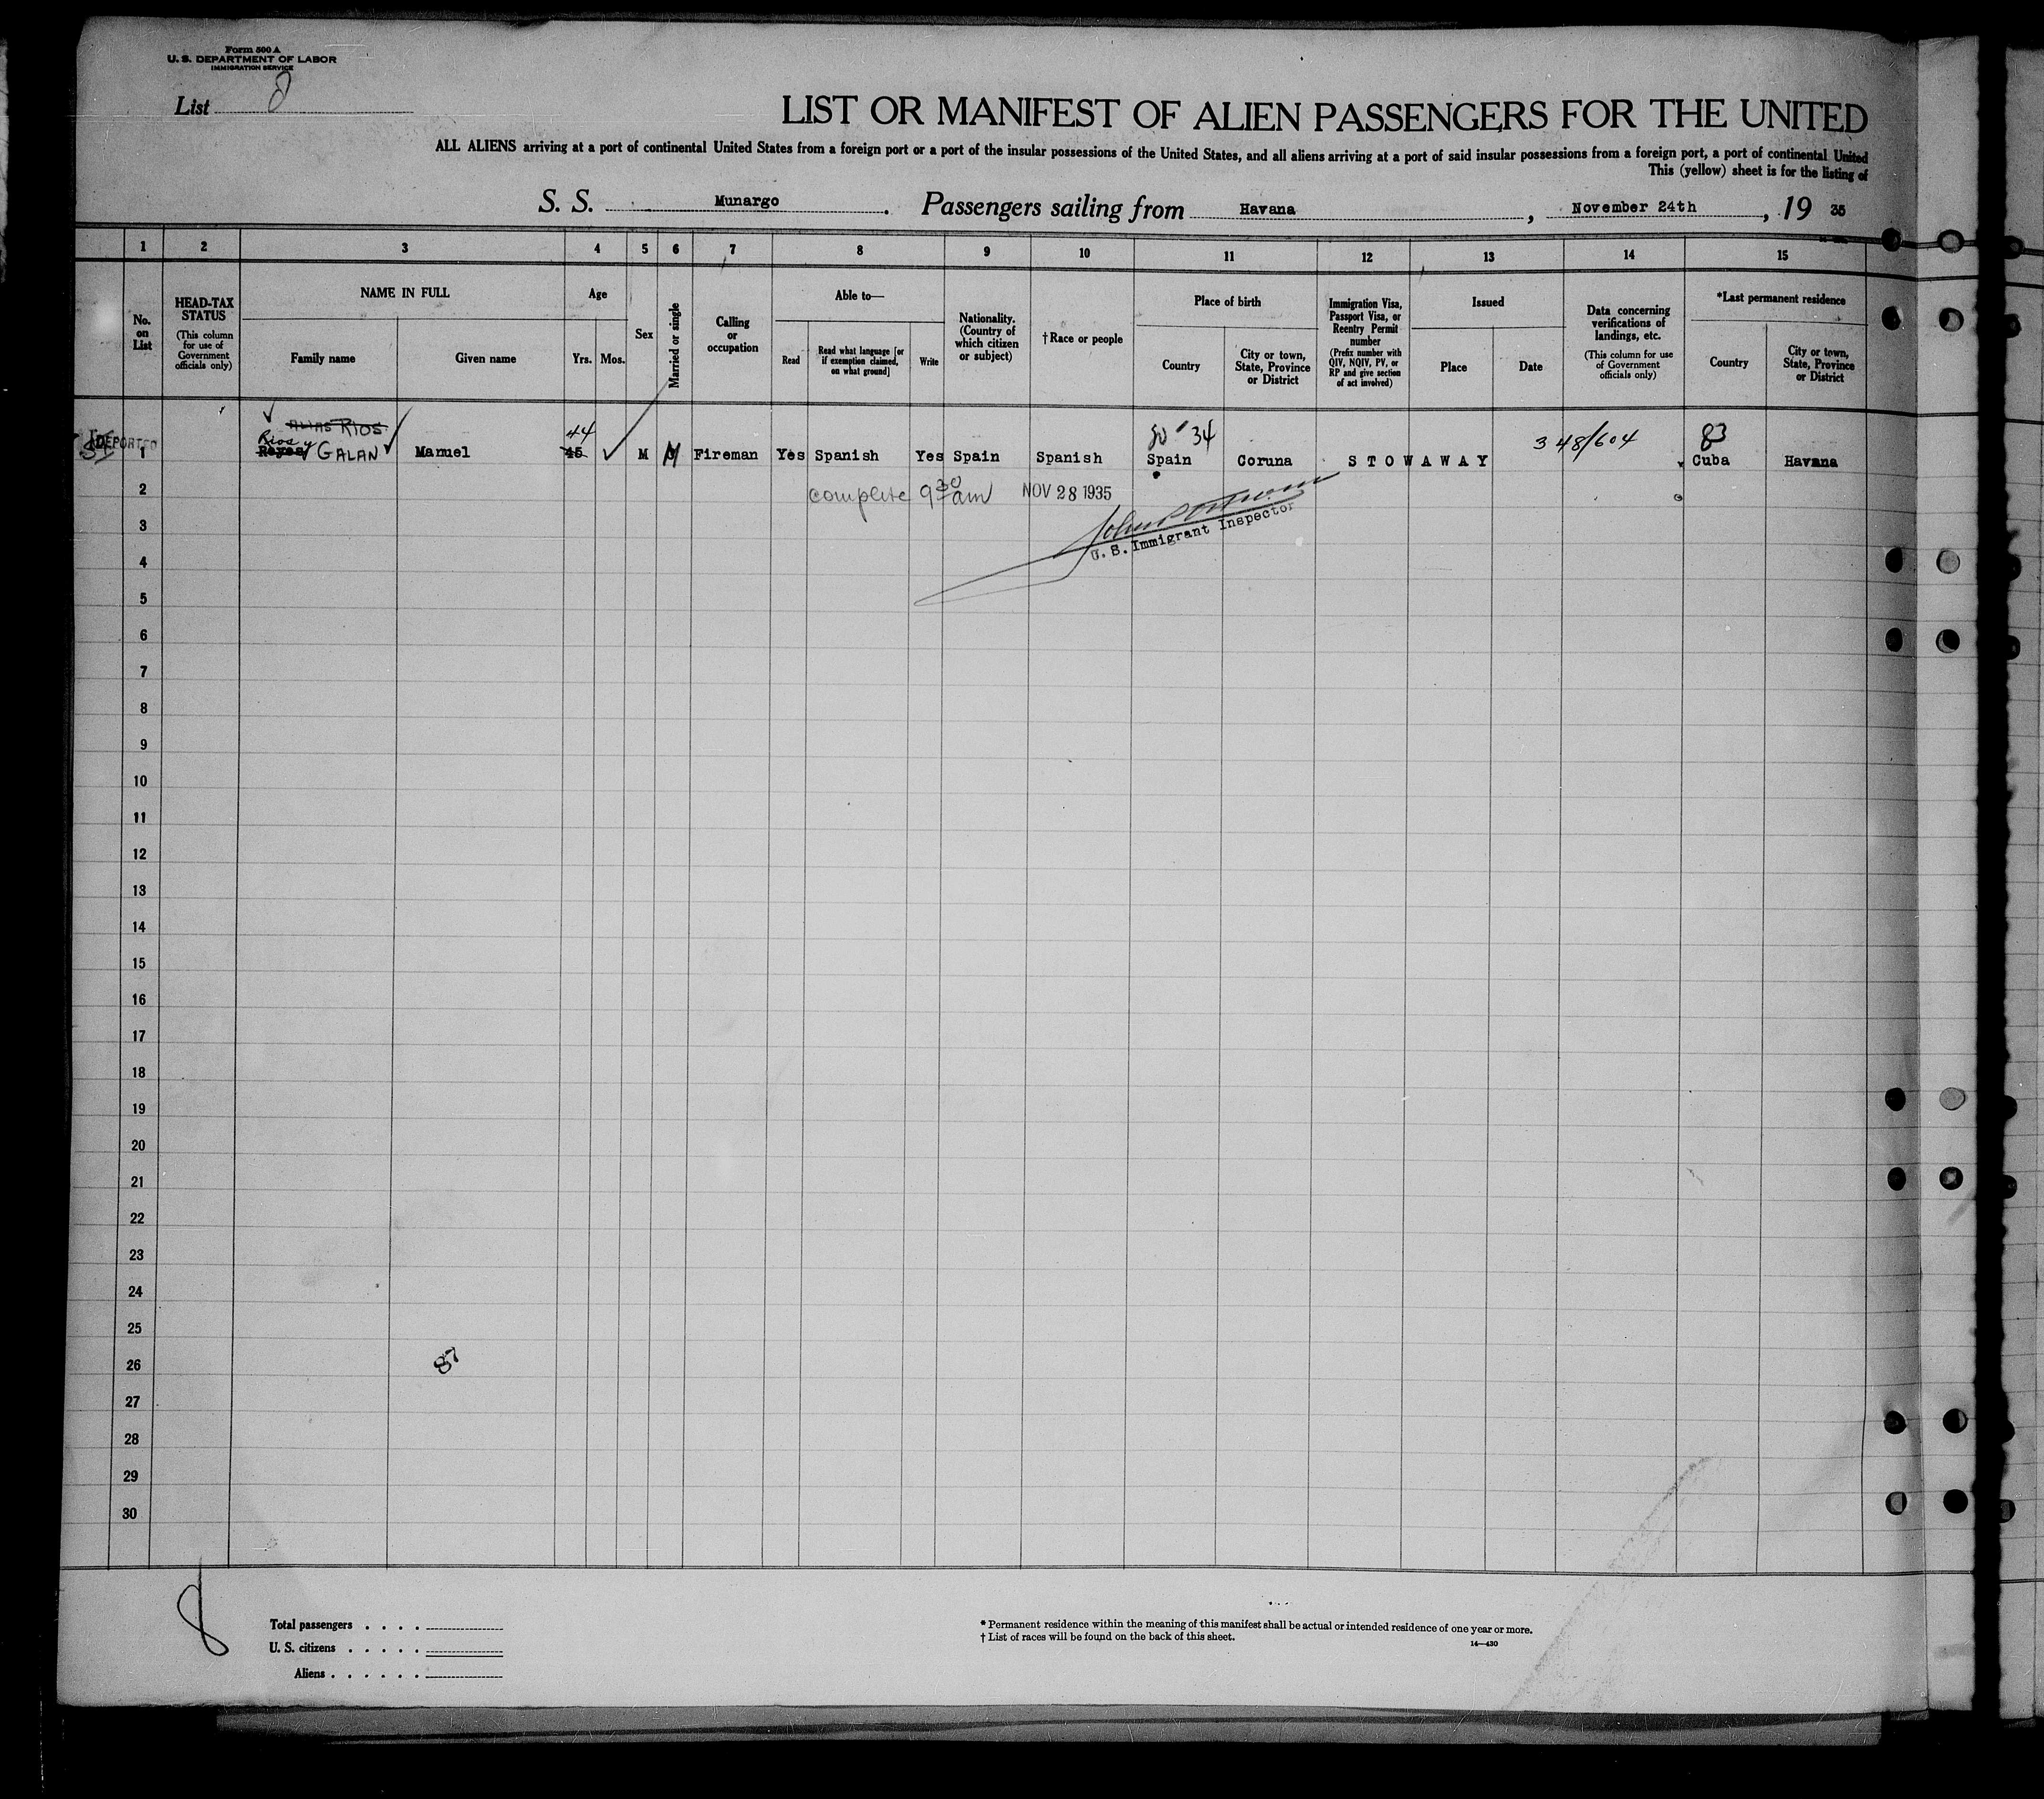 Form 500 A
U. S. DEPARTMENT OF LABOR
IMMIGRATION SERVICE
List 8
LIST OR MANIFEST OF ALIEN PASSENGERS FOR THE UNITED
ALL ALIENS arriving at a port of continental United States from a foreign port or a port of the insular possessions of the United States, and all aliens arriving at a port of said insular possessions from a foreign port, a port of continental United
This (yellow) sheet is for the listing of
S. S. Munargo. Passengers sailing from Havana, November 24th, 19 35
1 2 3 4 5 6 7 8 9 10 11 12 13 14 15
No. on List
HEAD-TAX STATUS
(This column for use of Government officials only)
NAME IN FULL
Family name
Given name
Age
Yrs.
Mos.
Sex
Married or single
Calling or occupation
Able to—
Read
Read what language [or if exemption claimed, on what ground]
Write
Nationality. (Country of which citizen or subject)
†Race or people
Place of birth
Country
City or town, State, Province or District
Immigration Visa, Passport Visa, or Reentry Permit number
(Prefix number with QIV, NQIV, PV, or RP and give section of act involved)
Issued
Place
Date
Data concerning verifications of landings, etc.
(This column for use of Government officials only)
*Last permanent residence
Country
City or town, State, Province or District
ALIAS RIOS
DEPORTED
1 Rios y Reyes GALAN Manuel 44 45 M M Fireman Yes Spanish Yes Spain Spanish Spain Coruna STOWAWAY 348/604 83 Cuba Havana
34
2 complete 9 30 am NOV 28 1935
3
U. S. Immigrant Inspector
4
5
6
7
8
9
10
11
12
13
14
15
16
17
18
19
20
21
22
23
24
25
26 87
27
28
29
30
8
Total passengers . . . .
U. S. citizens . . . . .
Aliens . . . . . .
* Permanent residence within the meaning of this manifest shall be actual or intended residence of one year or more.
† List of races will be found on the back of this sheet.
14—430